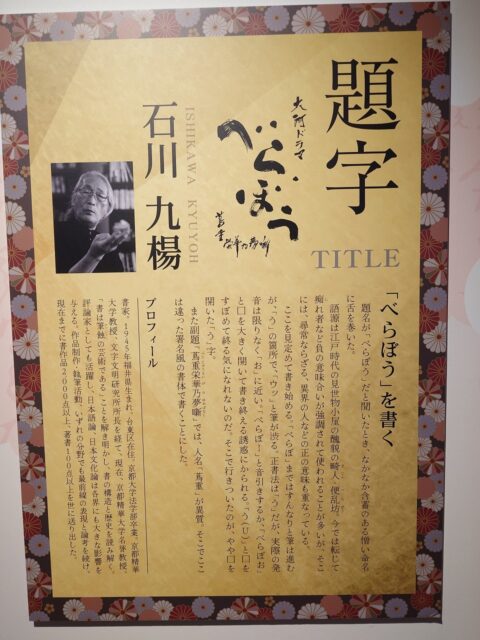 題字
TITLE
大河ドラマ
べらぼう
蔦重栄華乃夢噺
ISHIKAWA KYUYOH
石川 九楊
「べらぼう」を書く
題名が「べらぼう」だと聞いたとき、なかなか含蓄のある憎い命名
に舌を巻いた。
語源は江戸時代の見世物小屋の醜貌の畸人「便乱坊」。今では転じて
痴れ者など負の意味合いが強調されて使われることが多いが、そこ
には、尋常ならざる、異界の人などの正の意味も重なっている。
ここを見定めて書き始める。「べらぼ」まではすんなりと筆は進む
が、「う」の箇所で、「ウッ」と筆が渋る。正書法は「う」だが、実際の発
音は限りなく「お」に近い。「べらぼー」と音引きするか、「べらぼお」
と口を大きく開いて書き終える誘惑にかられる。「う(U)」と口を
すぼめて終る気になれないのだ。そこで行きついたのが、やや口を
開いた「う」字。
また副題「蔦重栄華乃夢噺」では、人名「蔦重」が異質。そこでここ
は違った署名風の書体で書くことにした。
プロフィール
書家。1945年福井県生まれ、台東区在住。京都大学法学部卒業。京都精華
大学教授、文字文明研究所所長を経て、現在、京都精華大学名誉教授。
「書は筆蝕の芸術である」ことを解き明かし、書の構造と歴史を読み解く。
評論家としても活躍し、日本語論、日本文化論は各界にも大きな影響を
与える。作品制作、執筆活動、いずれの分野でも最前線の表現と論考を続け、
現在までに書作品2000点以上、著書100点以上を世に送り出した。